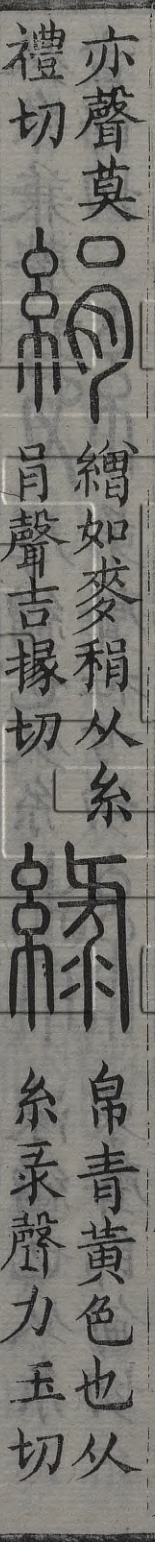 亦聲莫
禮切
絹
繒如麥䅌从糸
肙聲吉掾切
綠
帛青黃色也从
糸彔聲力玉切